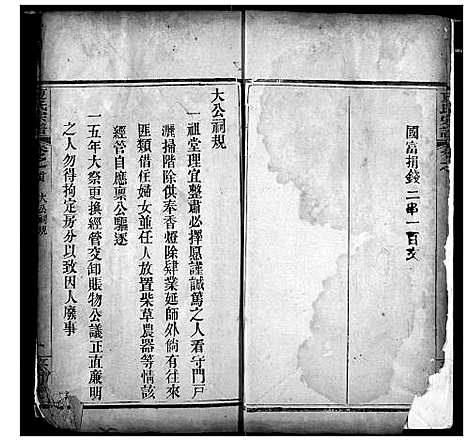 國富捐錢二串一百文
大公祠規
一祖堂理宜整肅必擇愿謹誠篤之人看守門戶
灑掃階除供奉香燈除肄業延師外倘有往來
匪類借住婦女並任人放置柴草農器等情該
經管自應稟公驅逐
一五年大祭更換經管交卸賬物公議正直廉明
之人勿得拘定房分以致因人廢事